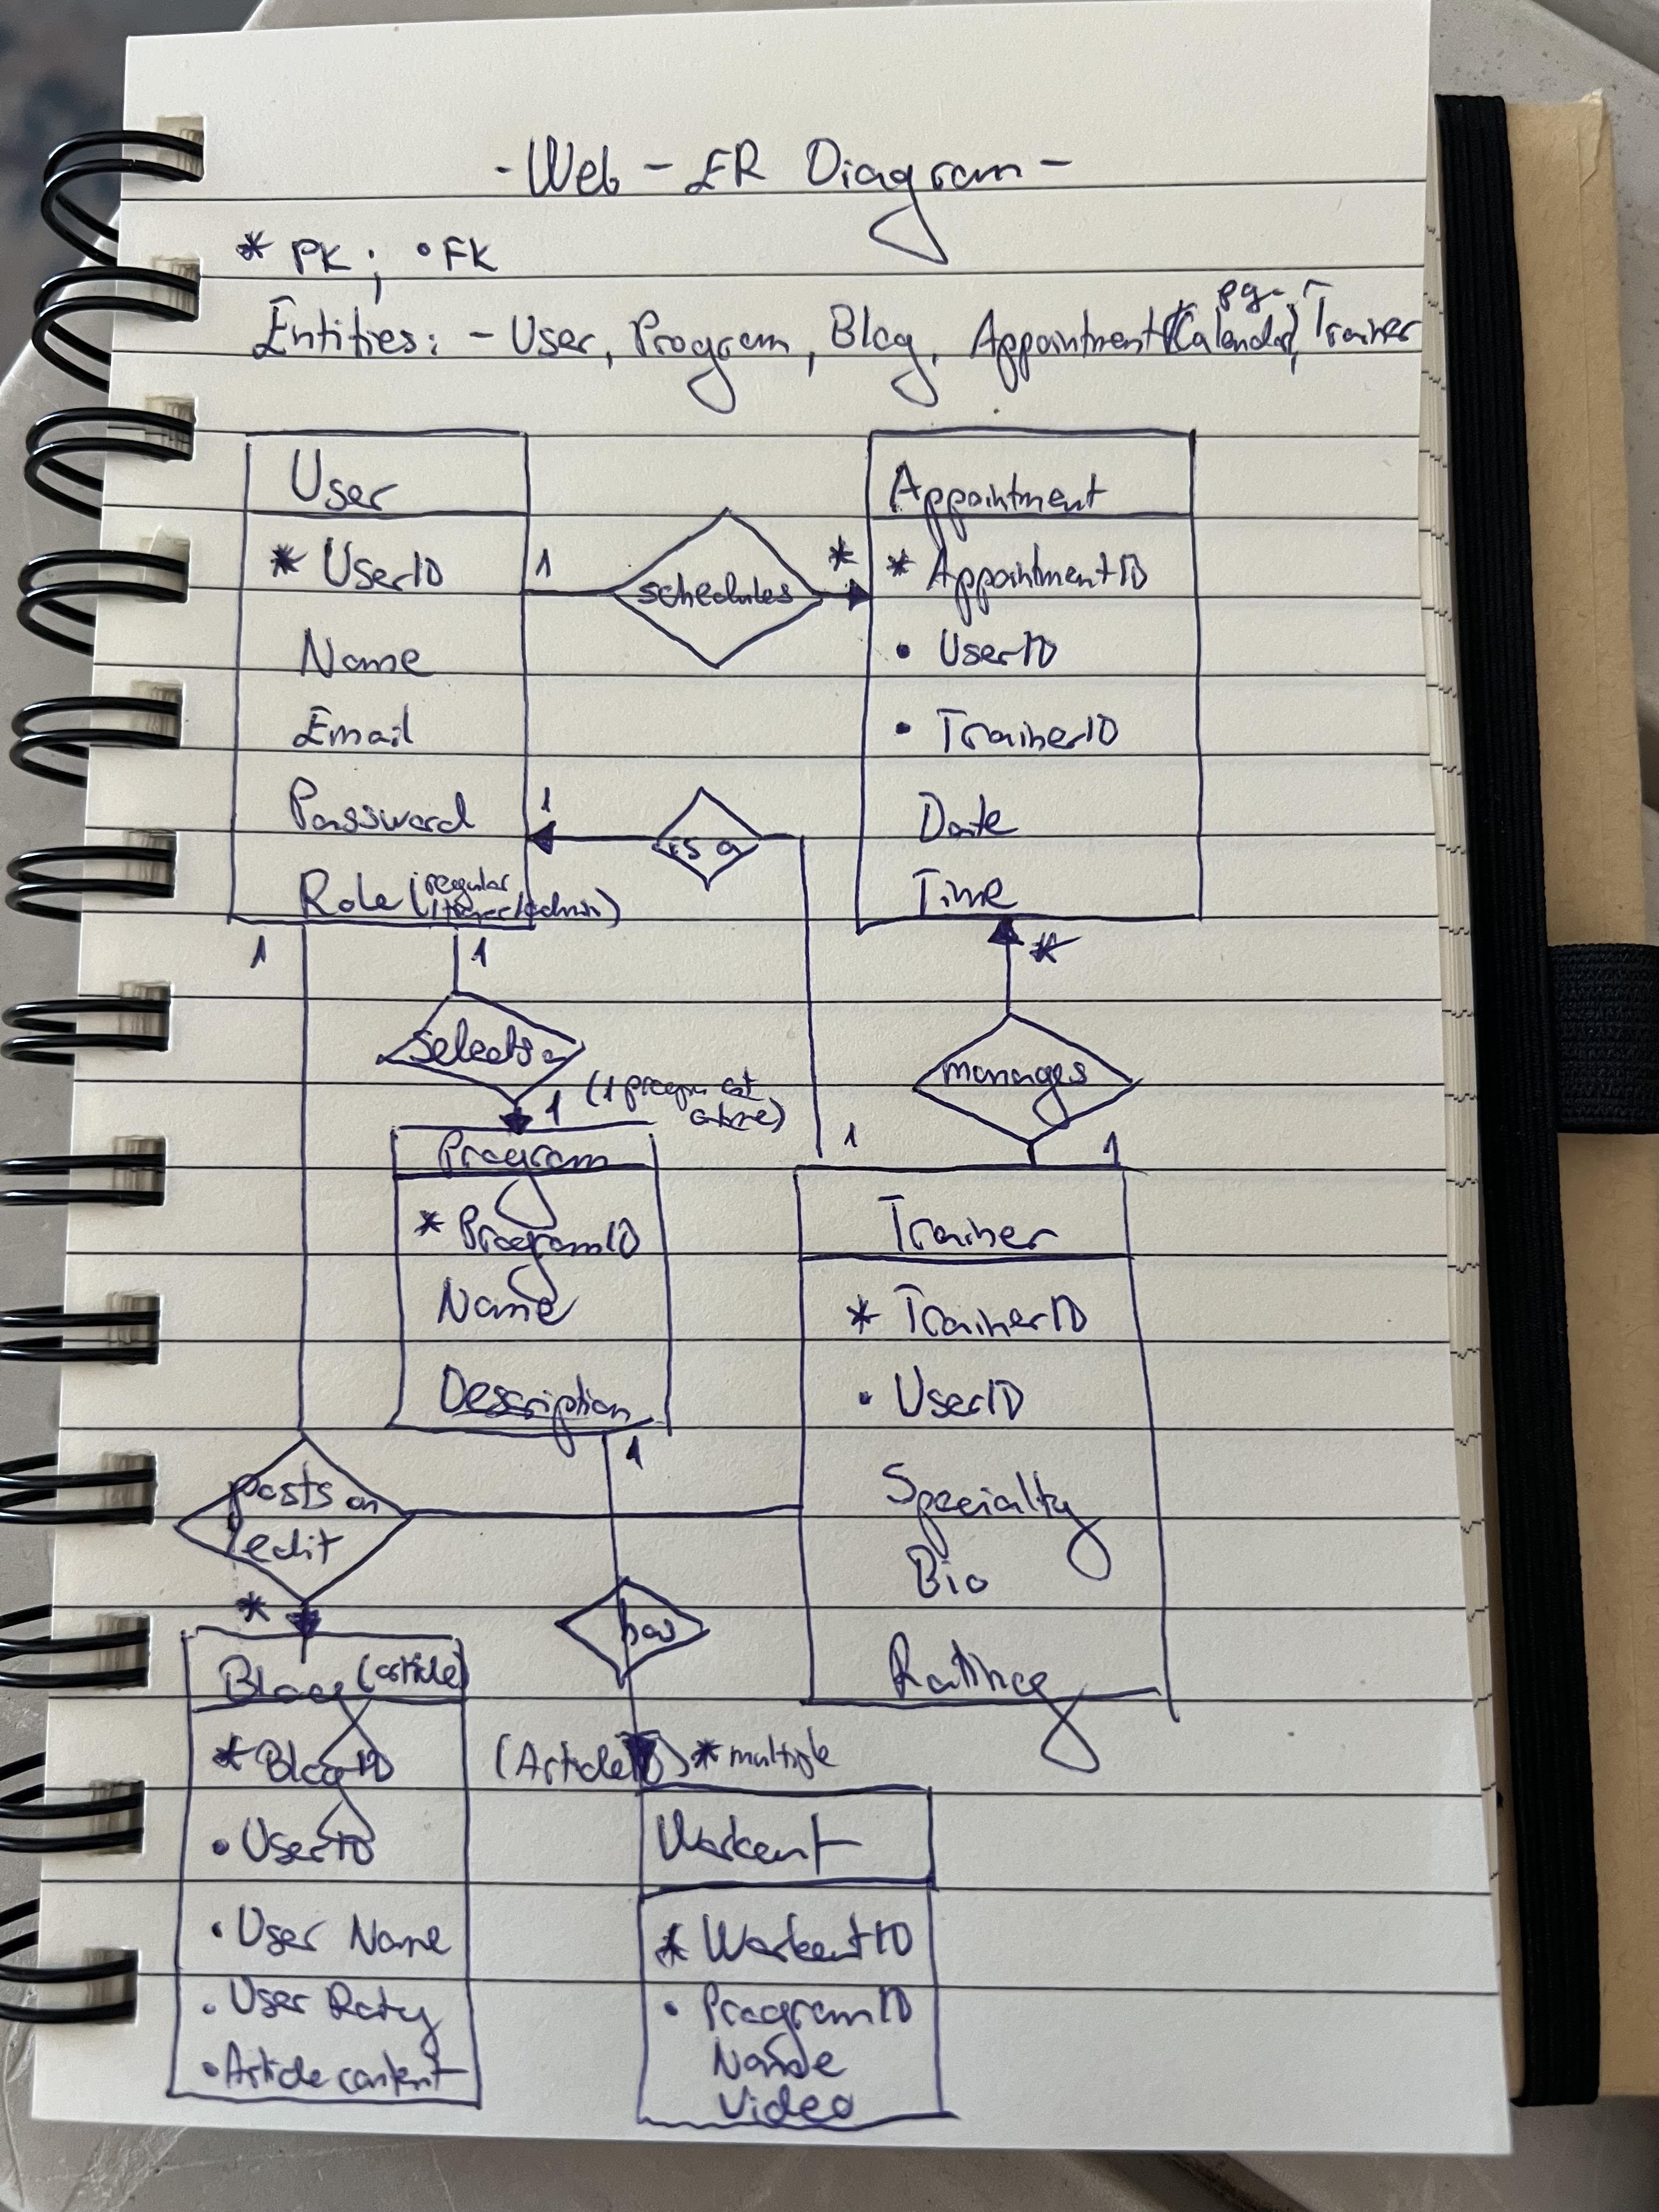 - Web - ER Diagram -
* PK ; • FK
pg.
Entities: - User, Program, Blog, Appointment (Calendar), Trainer
User
* UserID
Name
Email
Password
Role (regular
/trainer/admin)
1
schedules
*
Appointment
* AppointmentID
• UserID
• TrainerID
Date
Time
1
is a
1
1
1
selects a
1 (1 program at
a time)
*
manages
1
Program
* ProgramID
Name
Description
1
Trainer
* TrainerID
• UserID
Specialty
Bio
Rating
posts on
edit
*
has
Blog (article)
* BlogID
(ArticleID) * multiple
• UserID
• User Name
• User Rating
• Article content
Workout
* WorkoutID
• ProgramID
Name
Video